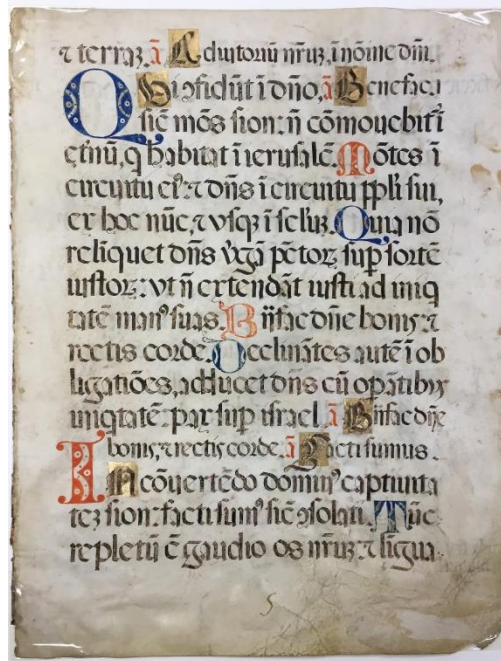 ⁊ terraz. ā Adiutoriū nr̄uz, ī nōīne dn̄i.
Qui ɔfidūt ī dn̄o, ā Benefac.
sic̄ mōs sion: n̄ cōmouebit̄ ī
et̄nū, q̄ habitat ī ierusalē. Mōtes ī
circuitu ei⁹: ⁊ dn̄s ī circuitu ppl̄i sui,
ex hoc nūc, ⁊ vsqꝫ ī sclūz. Quia nō
reliquet dn̄s v̄gā pc̄torꝝ sup̄ sortē
iustorꝝ: vt n̄ extendāt iusti ad iniq
tatē man⁹ suas. Bn̄fac dn̄e bonis: ⁊
rectis corde. Declinātes autē ī ob
ligatiōes, adducet dn̄s cū oꝑātibꝫ
iniqtatē: pax sup̄ israel. ā Bn̄fac dn̄e
bonis, ⁊ rectis corde. ā Facti sumus.
In cōuertēdo domin⁹ captiuita
tez sion: facti sum⁹ sic̄ ɔsolati. Tūc
repletū ē gaudio os nr̄uz: ⁊ ligua